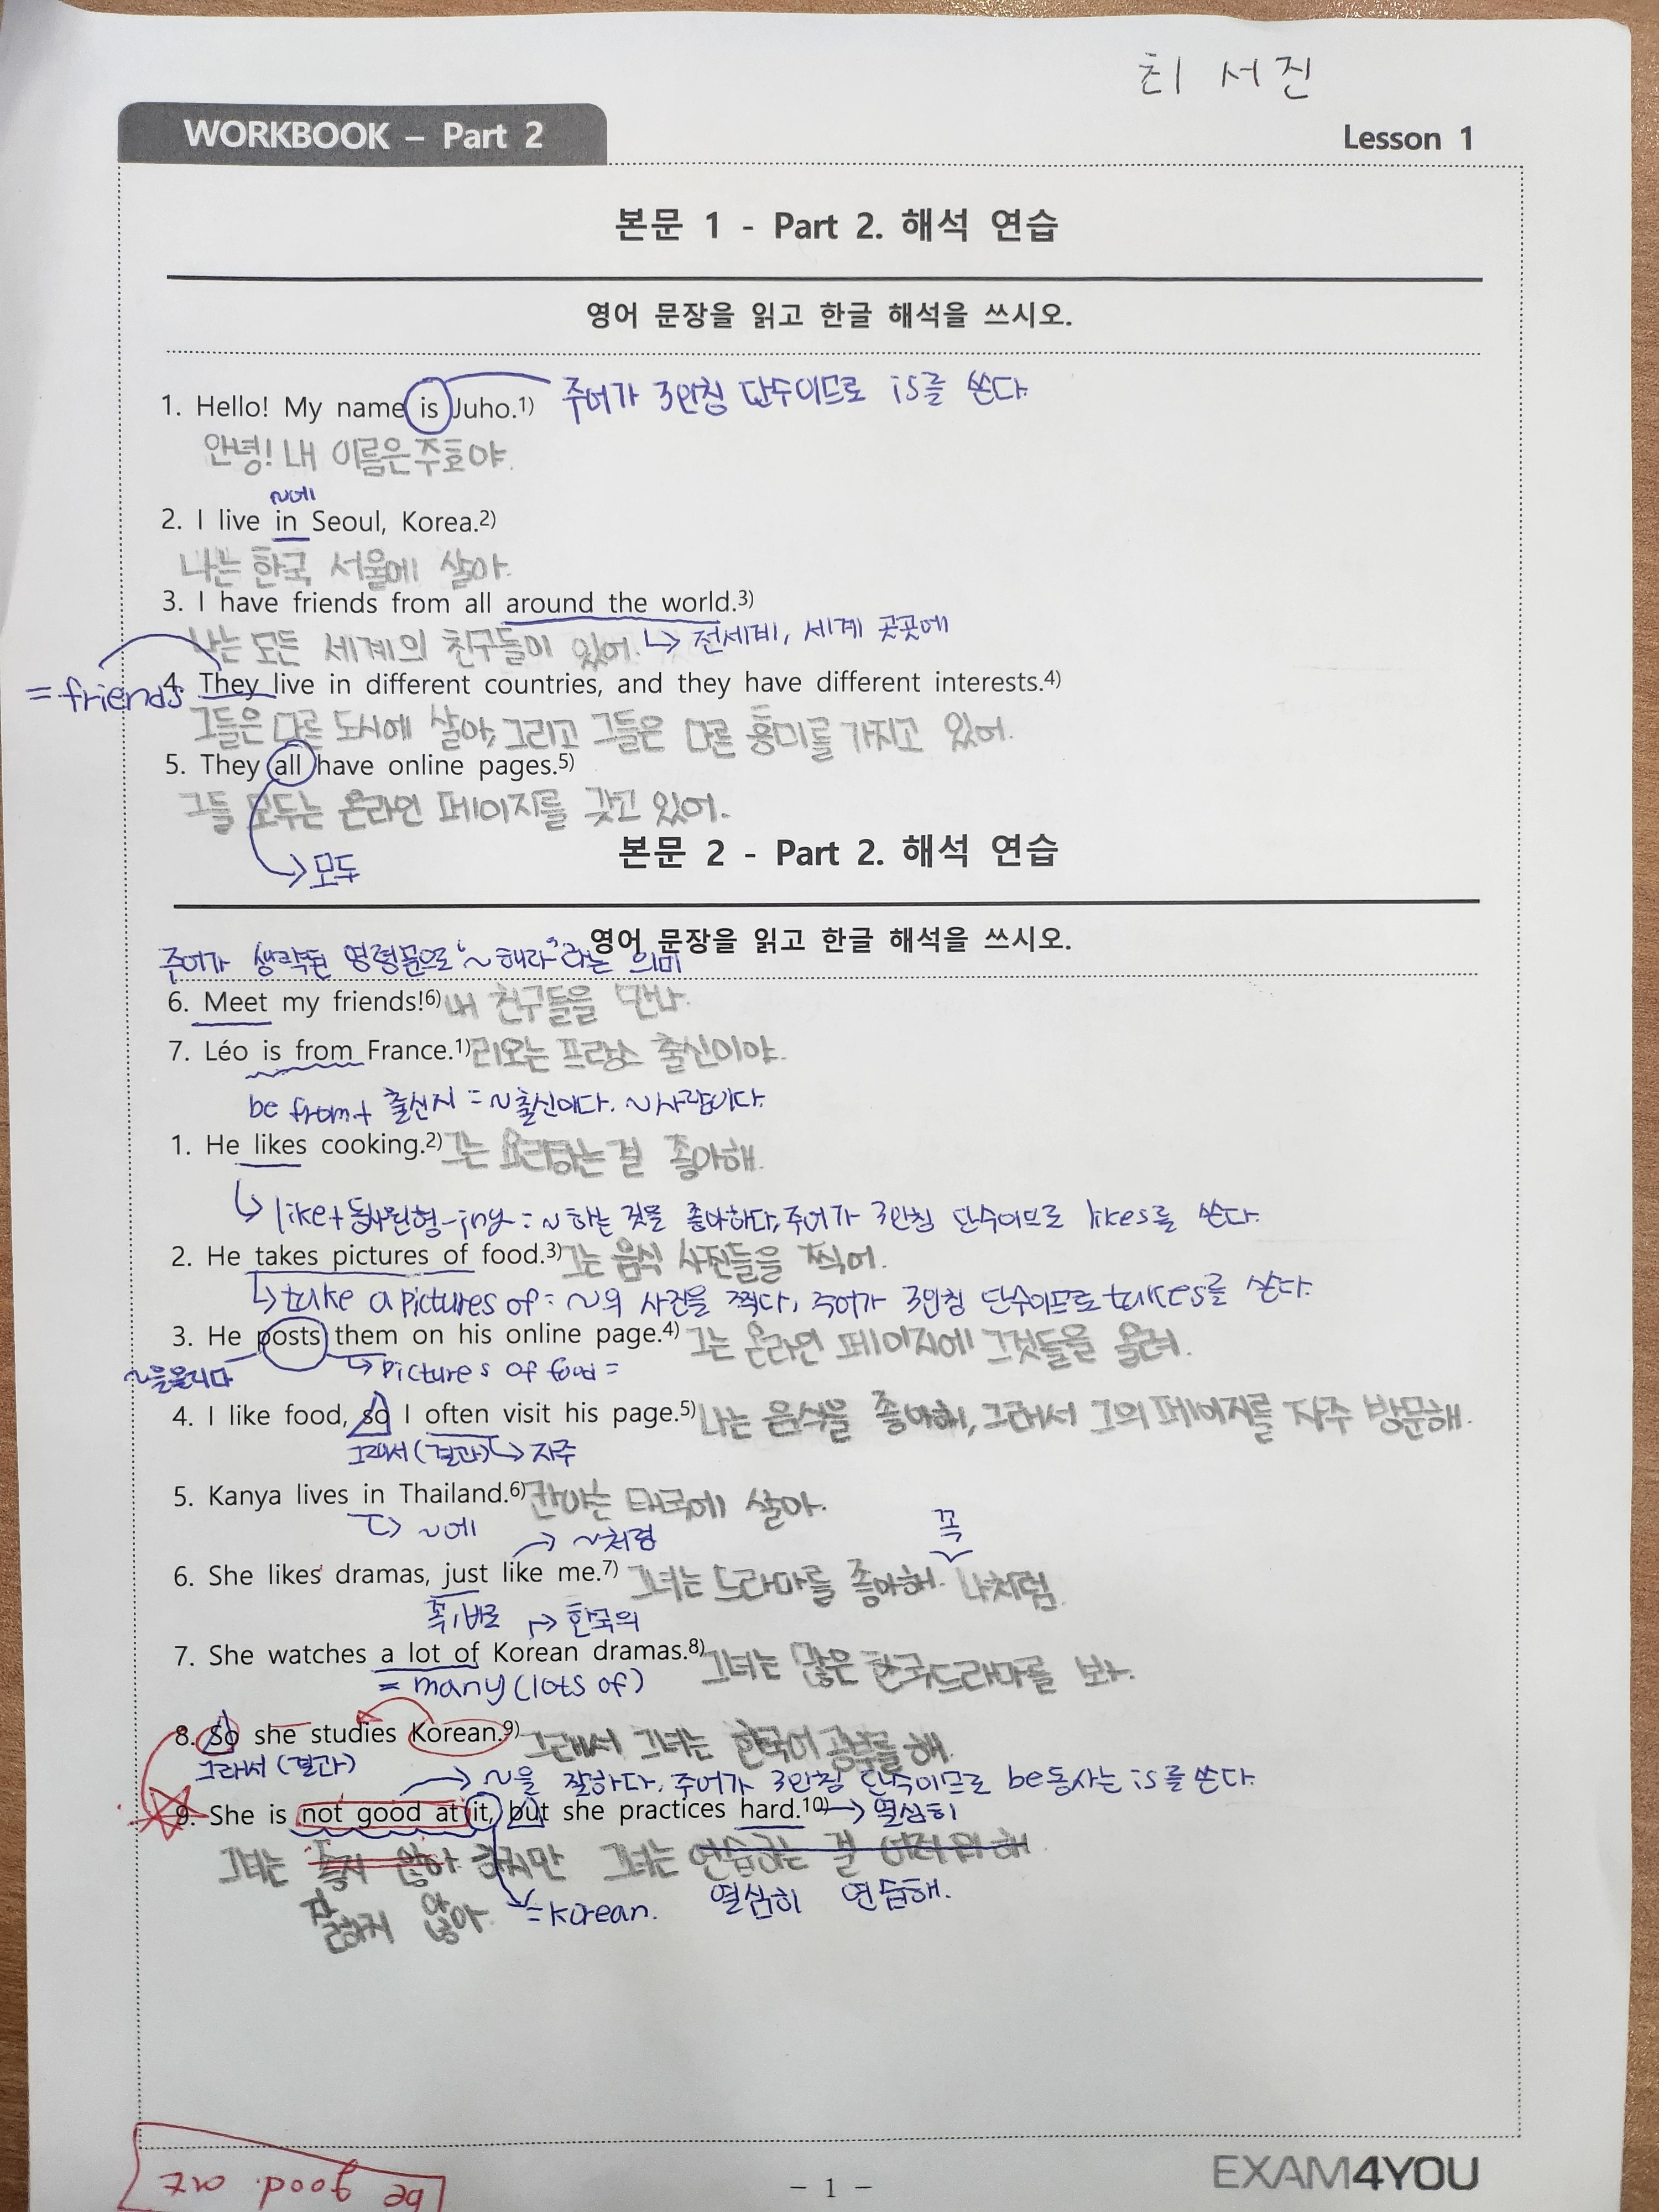 최 서진
WORKBOOK – Part 2
Lesson 1
본문 1 - Part 2. 해석 연습
영어 문장을 읽고 한글 해석을 쓰시오.
1. Hello! My name is Juho.1) 주어가 3인칭 단수이므로 is를 쓴다.
안녕! 내 이름은 주호야.
~에
2. I live in Seoul, Korea.2)
나는 한국 서울에 살아.
3. I have friends from all around the world.3)
나는 모든 세계의 친구들이 있어. → 전세계, 세계 곳곳에
= friends
4. They live in different countries, and they have different interests.4)
그들은 다른 도시에 살아, 그리고 그들은 다른 흥미를 가지고 있어.
5. They all have online pages.5)
그들 모두는 온라인 페이지를 갖고 있어.
→ 모두
본문 2 - Part 2. 해석 연습
영어 문장을 읽고 한글 해석을 쓰시오.
주어가 생략된 명령문으로 '~해라'라는 의미
6. Meet my friends!6) 내 친구들을 만나.
7. Léo is from France.1) 리오는 프랑스 출신이야.
be from + 출신지 = ~출신이다. ~사람이다.
1. He likes cooking.2) 그는 요리하는 걸 좋아해.
→ like + 동사원형-ing : ~하는 것을 좋아하다, 주어가 3인칭 단수이므로 likes를 쓴다.
2. He takes pictures of food.3) 그는 음식 사진들을 찍어.
→ take a pictures of : ~의 사진을 찍다, 주어가 3인칭 단수이므로 takes를 쓴다.
3. He posts them on his online page.4) 그는 온라인 페이지에 그것들을 올려.
~을 올리다 → Pictures of food =
4. I like food, so I often visit his page.5) 나는 음식을 좋아해, 그래서 그의 페이지를 자주 방문해.
그래서 (결과) → 자주
5. Kanya lives in Thailand.6) 칸야는 태국에 살아.
→ ~에 → ~처럼 꼭
6. She likes dramas, just like me.7) 그녀는 드라마를 좋아해. 나처럼.
꼭, 바로 → 한국의
7. She watches a lot of Korean dramas.8) 그녀는 많은 한국드라마를 봐.
= many (lots of)
8. So she studies Korean.9) 그래서 그녀는 한국어 공부를 해.
그래서 (결과) → ~을 잘하다, 주어가 3인칭 단수이므로 be동사는 is를 쓴다.
9. She is not good at it, but she practices hard.10) → 열심히
그녀는 좋지 않아 하지만 그녀는 연습하는 걸 어려워 해
잘하지 않아. = Korean. 열심히 연습해.
be good at
- 1 -
EXAM4YOU